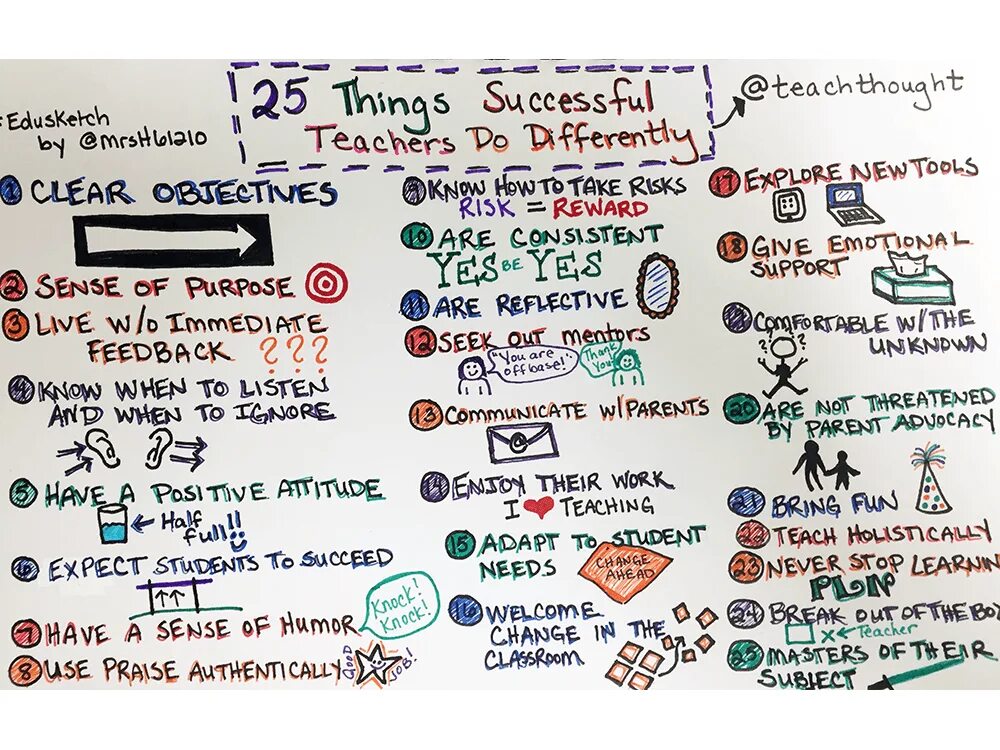 25 Things Successful
Teachers Do Differently
@teachthought
EduSketch
by @mrsH61210
1 CLEAR OBJECTIVES
2 SENSE OF PURPOSE
3 LIVE W/O IMMEDIATE
FEEDBACK ???
4 KNOW WHEN TO LISTEN
AND WHEN TO IGNORE
5 HAVE A POSITIVE ATTITUDE
Half
full!!
6 EXPECT STUDENTS TO SUCCEED
7 HAVE A SENSE OF HUMOR
Knock!
Knock!
8 USE PRAISE AUTHENTICALLY
GOOD JOB!
9 KNOW HOW TO TAKE RISKS
RISK = REWARD
10 ARE CONSISTENT
YES BE YES
11 ARE REFLECTIVE
12 SEEK OUT mentors
"You are
off base!"
Thank
You!
13 COMMUNICATE W/PARENTS
@
14 ENJOY THEIR WORK
I ❤ TEACHING
15 ADAPT TO STUDENT
NEEDS
CHANGE
AHEAD
16 WELCOME
CHANGE IN THE
CLASSROOM
17 EXPLORE NEW TOOLS
18 GIVE EMOTIONAL
SUPPORT
19 COMFORTABLE W/THE
UNKNOWN
? ?
20 ARE NOT THREATENED
BY PARENT ADVOCACY
21 BRING FUN
22 TEACH HOLISTICALLY
23 NEVER STOP LEARNIN
PLN
24 BREAK OUT OF THE BO
X ← Teacher
25 MASTERS OF THEIR
SUBJECT